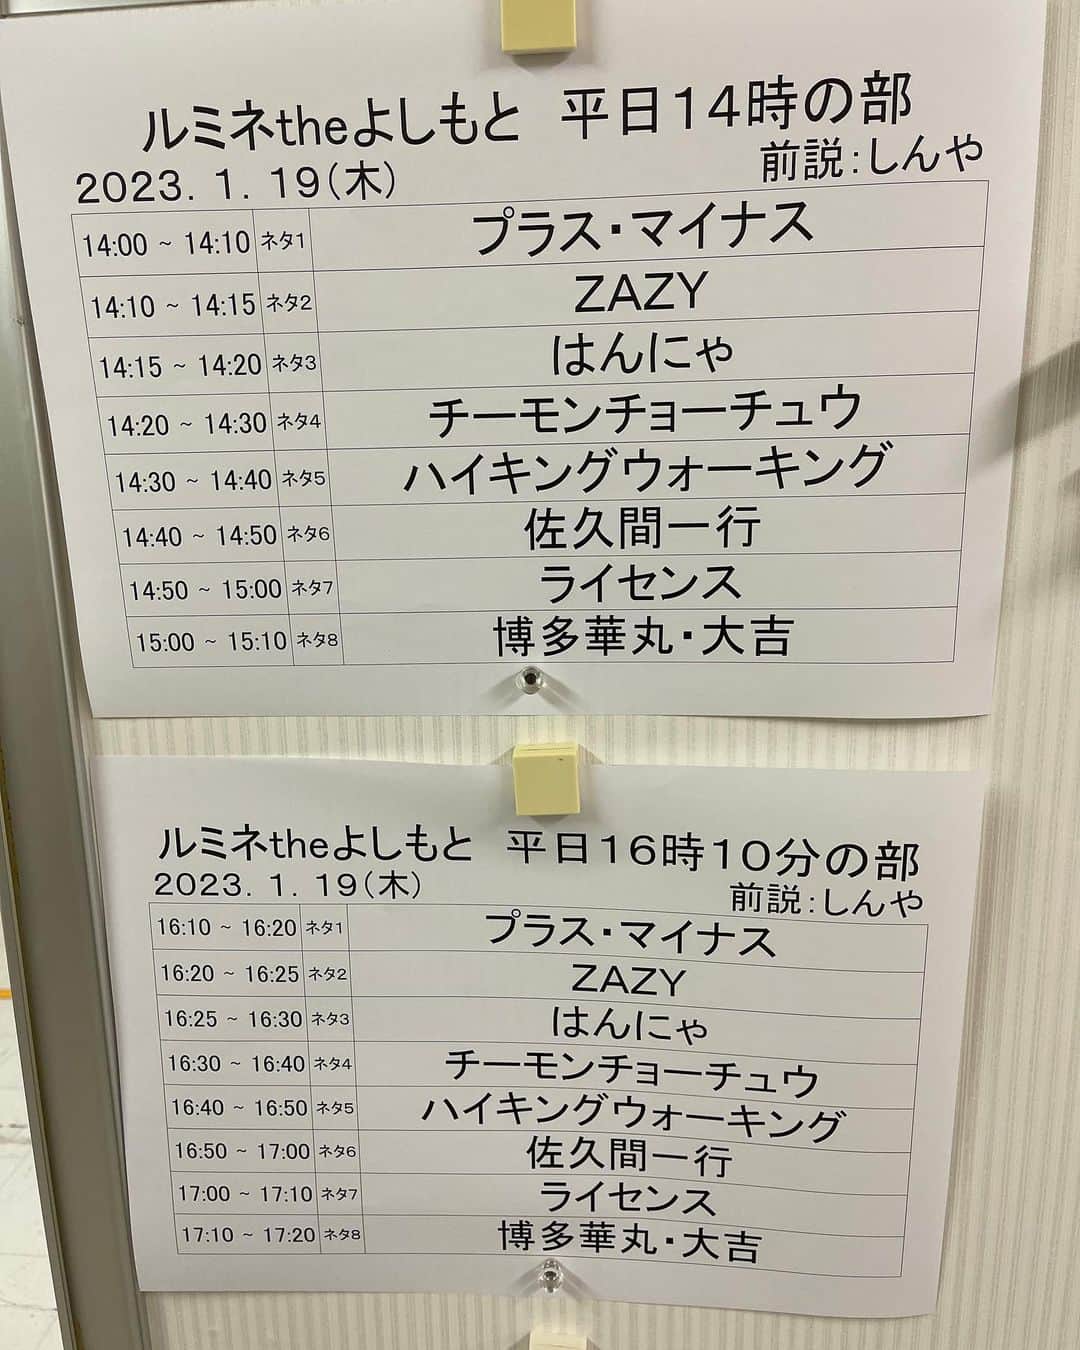 ルミネtheよしもと 平日14時の部
2023. 1. 19(木) 前説:しんや
14:00 ~ 14:10 ネタ1 プラス・マイナス
14:10 ~ 14:15 ネタ2 ZAZY
14:15 ~ 14:20 ネタ3 はんにゃ
14:20 ~ 14:30 ネタ4 チーモンチョーチュウ
14:30 ~ 14:40 ネタ5 ハイキングウォーキング
14:40 ~ 14:50 ネタ6 佐久間一行
14:50 ~ 15:00 ネタ7 ライセンス
15:00 ~ 15:10 ネタ8 博多華丸・大吉
ルミネtheよしもと 平日16時10分の部
2023. 1. 19(木) 前説:しんや
16:10 ~ 16:20 ネタ1 プラス・マイナス
16:20 ~ 16:25 ネタ2 ZAZY
16:25 ~ 16:30 ネタ3 はんにゃ
16:30 ~ 16:40 ネタ4 チーモンチョーチュウ
16:40 ~ 16:50 ネタ5 ハイキングウォーキング
16:50 ~ 17:00 ネタ6 佐久間一行
17:00 ~ 17:10 ネタ7 ライセンス
17:10 ~ 17:20 ネタ8 博多華丸・大吉